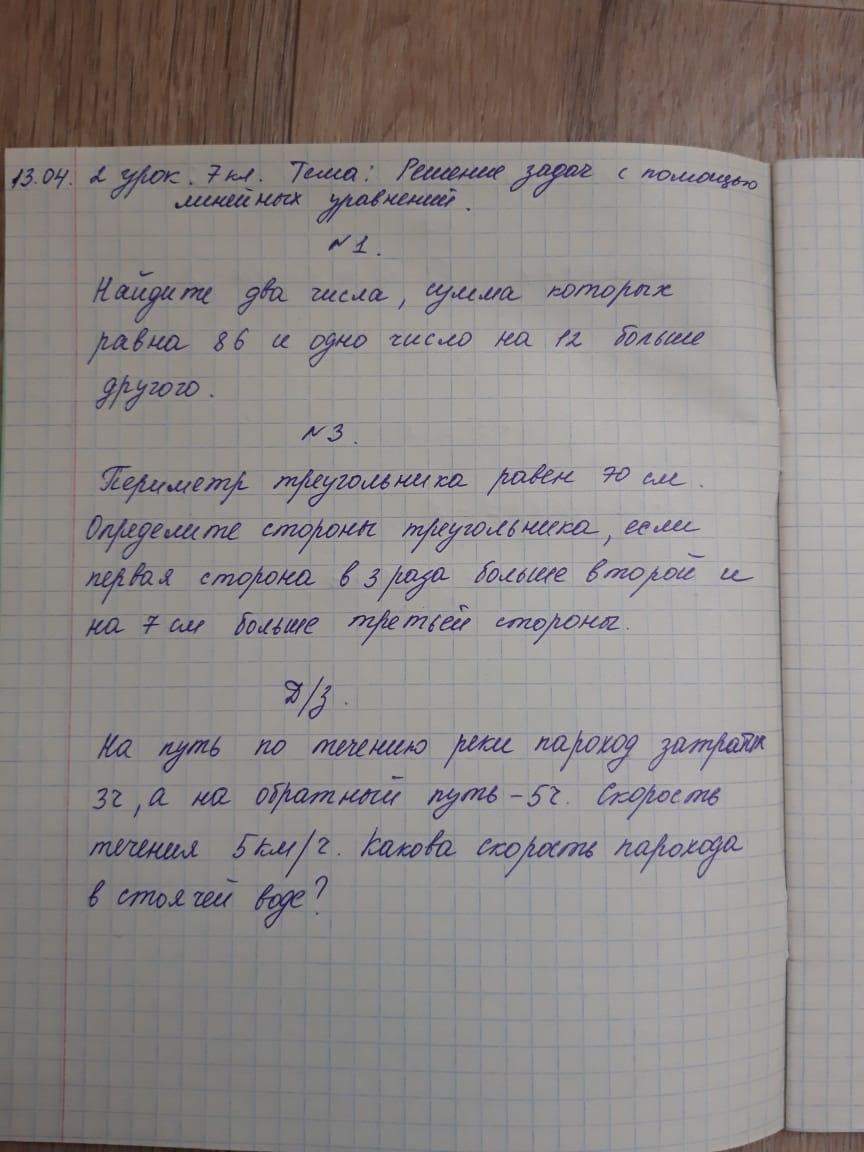 13.04. 2 урок. 7 кл. Тема: Решение задач с помощью
линейных уравнений.
№1.
Найдите два числа, сумма которых
равна 86 и одно число на 12 больше
другого.
№3.
Периметр треугольника равен 70 см.
Определите стороны треугольника, если
первая сторона в 3 раза больше второй и
на 7 см больше третьей стороны.
Д/з.
На путь по течению реки пароход затратил
3ч, а на обратный путь - 5ч. Скорость
течения 5 км/ч. Какова скорость парохода
в стоячей воде?